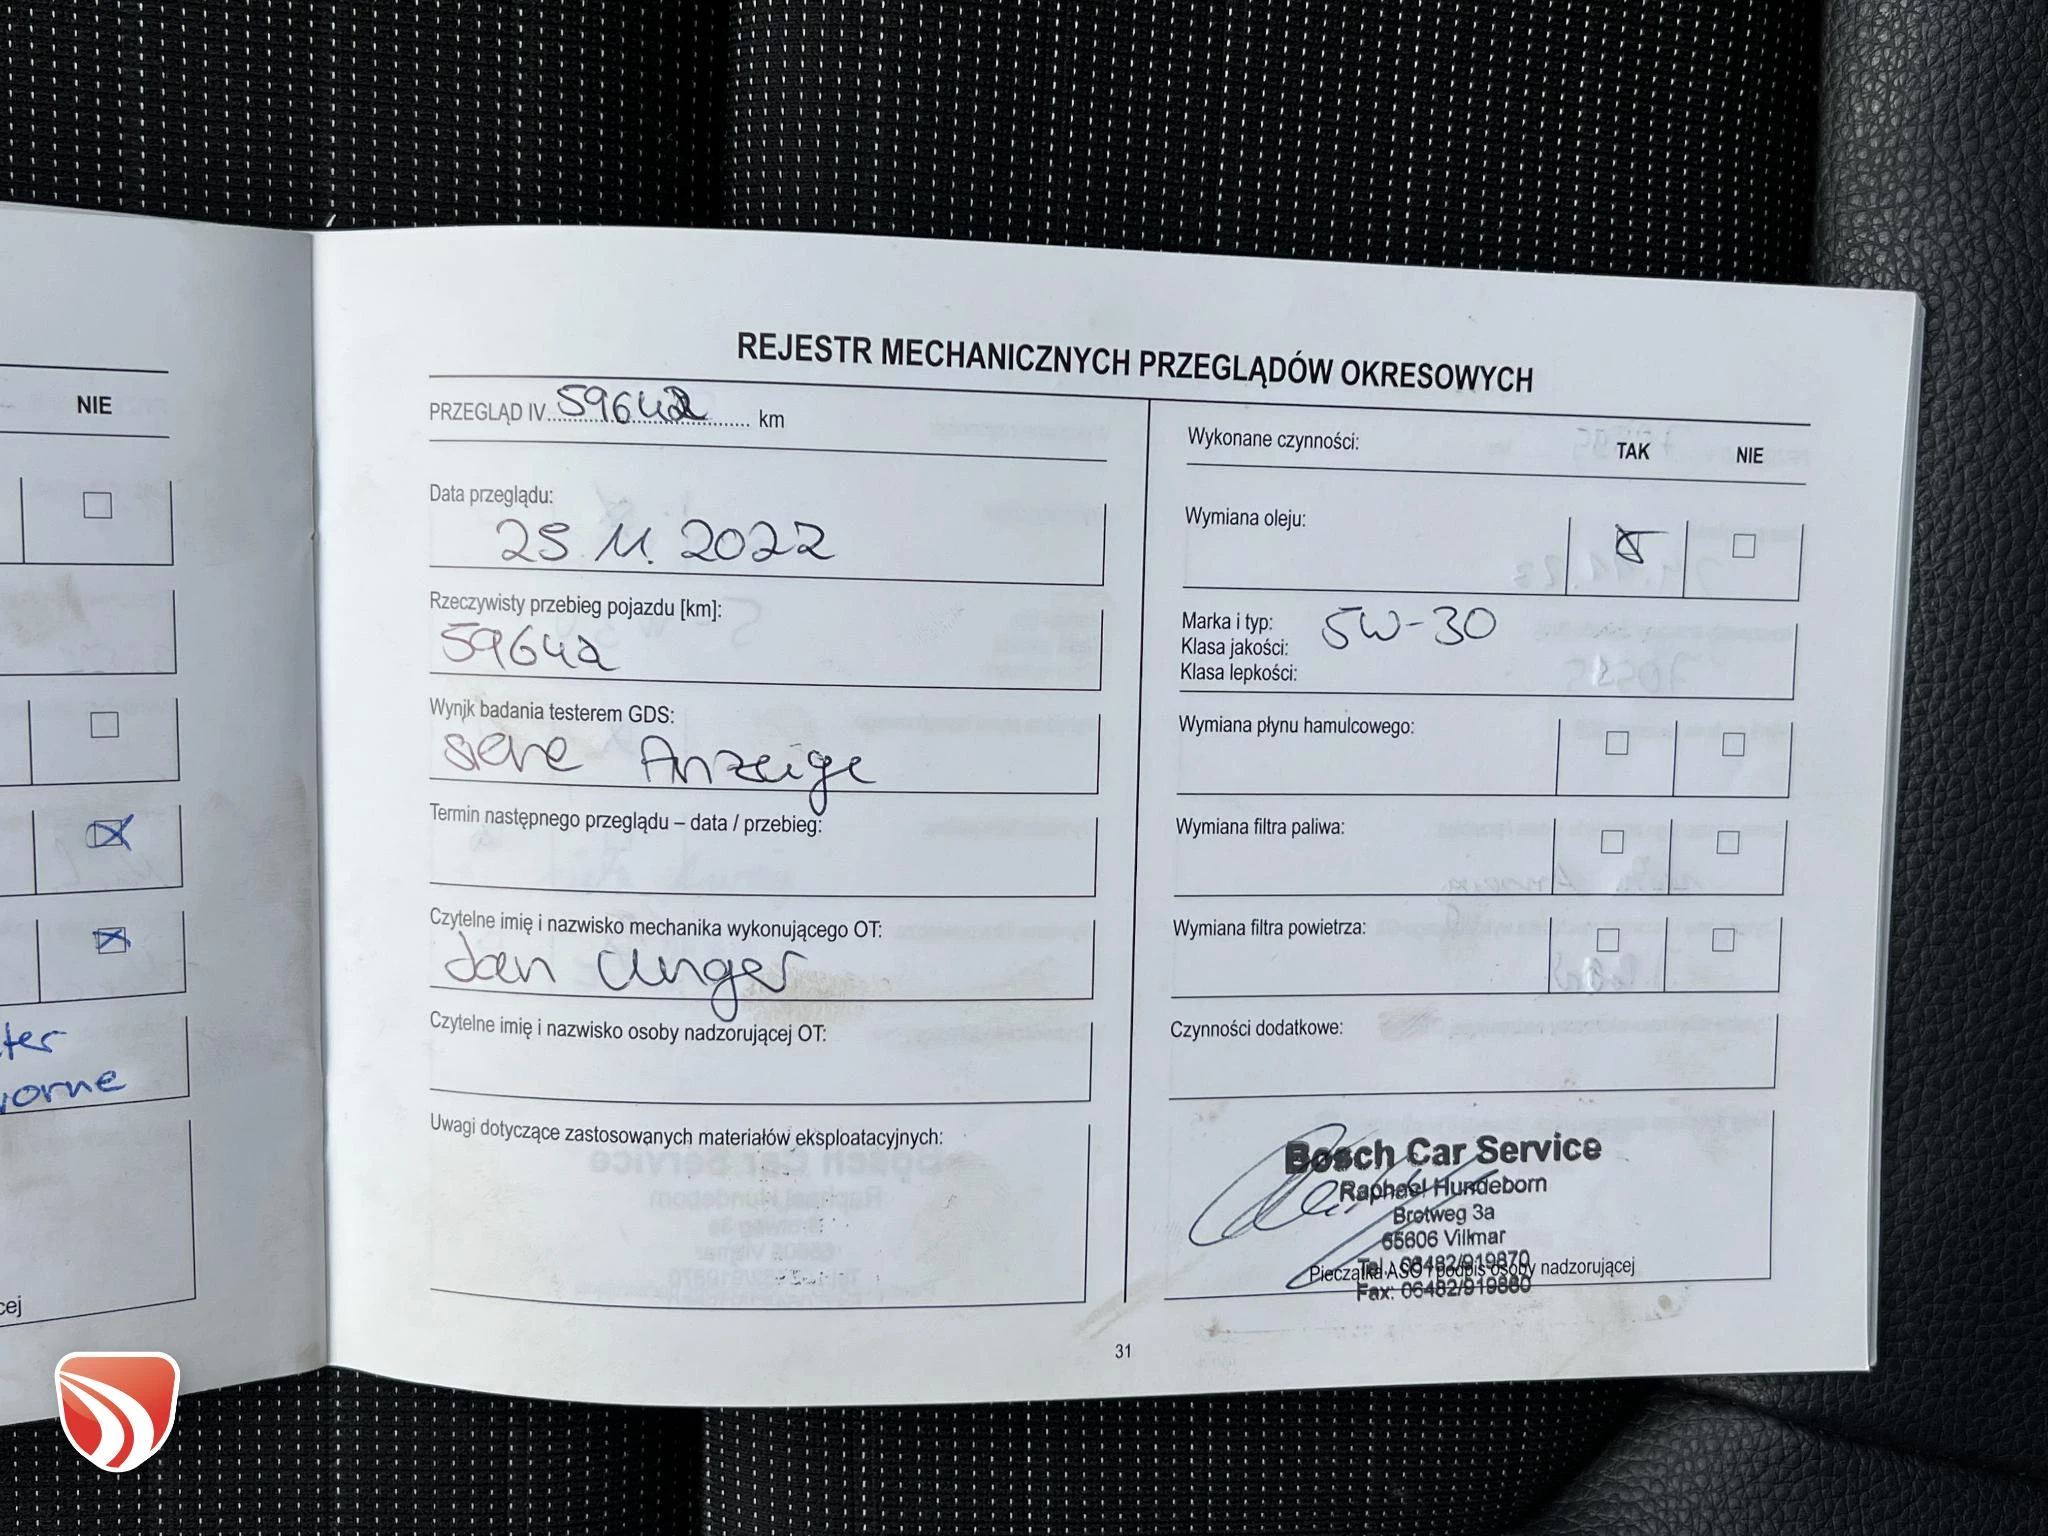 NIE
ter
orne
cej
REJESTR MECHANICZNYCH PRZEGLĄDÓW OKRESOWYCH
PRZEGLĄD IV 59642 km
Data przeglądu:
25 11. 2022
Rzeczywisty przebieg pojazdu [km]:
59642
Wynjk badania testerem GDS:
siehe Anzeige
Termin następnego przeglądu – data / przebieg:
Czytelne imię i nazwisko mechanika wykonującego OT:
Jan Unger
Czytelne imię i nazwisko osoby nadzorującej OT:
Uwagi dotyczące zastosowanych materiałów eksploatacyjnych:
Wykonane czynności: TAK NIE
Wymiana oleju:
Marka i typ: 5W-30
Klasa jakości:
Klasa lepkości:
Wymiana płynu hamulcowego:
Wymiana filtra paliwa:
Wymiana filtra powietrza:
Czynności dodatkowe:
Bosch Car Service
Raphael Hundeborn
Brotweg 3a
65606 Vilmar
Tel. 06482/919870
Pieczątka ASO i podpis osoby nadzorującej
Fax: 06482/919880
31